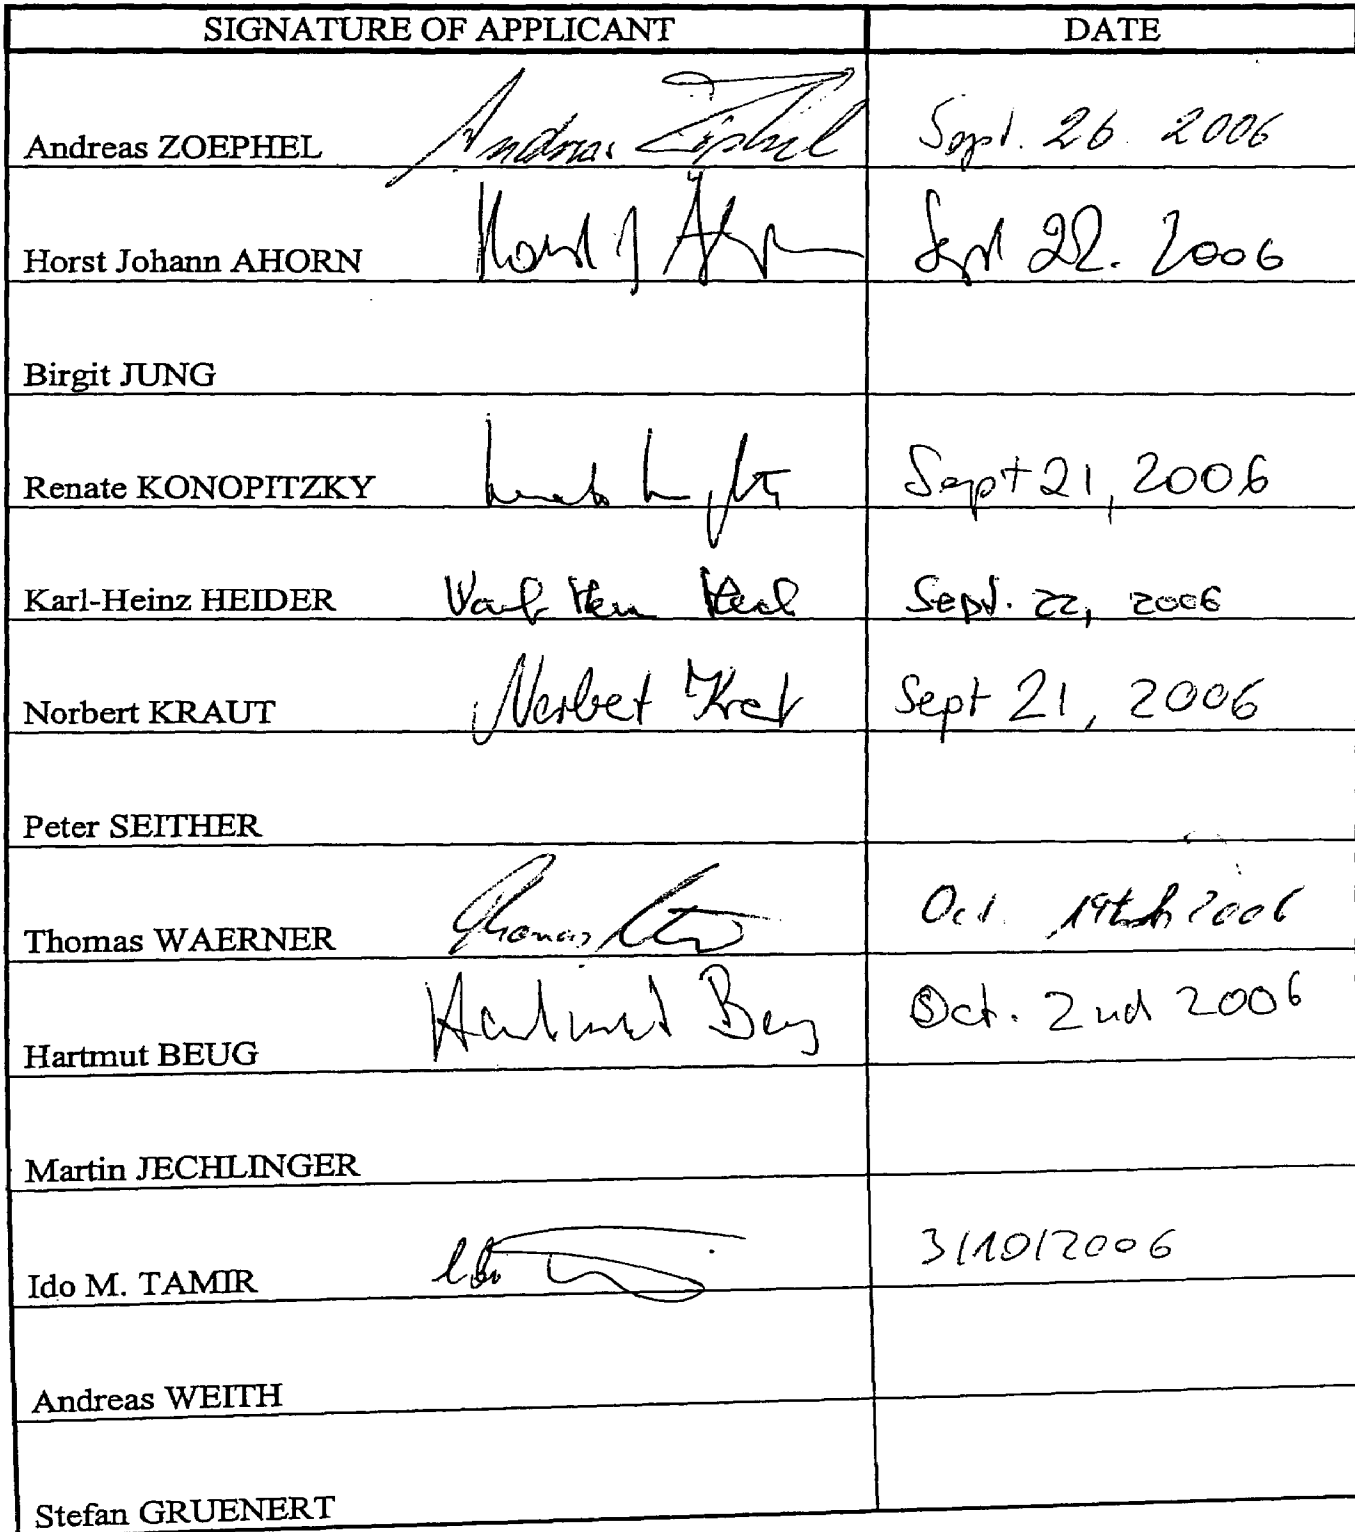 SIGNATURE OF APPLICANT DATE
Andreas ZOEPHEL Andreas Zöphel Sept. 26. 2006
Horst Johann AHORN Horst J Ahorn Sept 22. 2006
Birgit JUNG
Renate KONOPITZKY Sept 21, 2006
Karl-Heinz HEIDER Sept. 22, 2006
Norbert KRAUT Norbert Kraut Sept 21, 2006
Peter SEITHER
Thomas WAERNER Thomas Oct. 19th 2006
Hartmut BEUG Hartmut Beug Oct. 2nd 2006
Martin JECHLINGER
Ido M. TAMIR Ido 3/10/2006
Andreas WEITH
Stefan GRUENERT